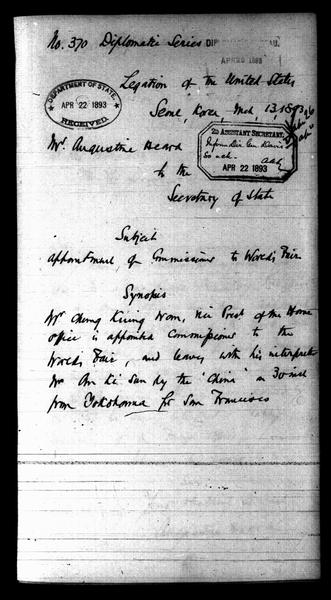 No. 370 Diplomatic Series
DIPLOMATIC BUREAU.
APR 25 1893
Legation of the United States
Seoul, Korea, Mch, 13, 1893
DEPARTMENT OF STATE,
APR 22 1893
RECEIVED.
2D ASSISTANT SECRETARY,
Inform Dir. Gen. Davis
so ack.
AAA
APR 22 1893
Mr. Augustine Heard
to the
Secretary of State
Subject
Appointment of Commissioner to World's Fair
Synopsis
Mr Cheung Kiung Won, vice Prest of the Home
office is appointed Commissioner to the
World's Fair, and leaves with his interpreter
Mr An Ki Sun by the "China" on 30 inst
from Yokohama for San Francisco